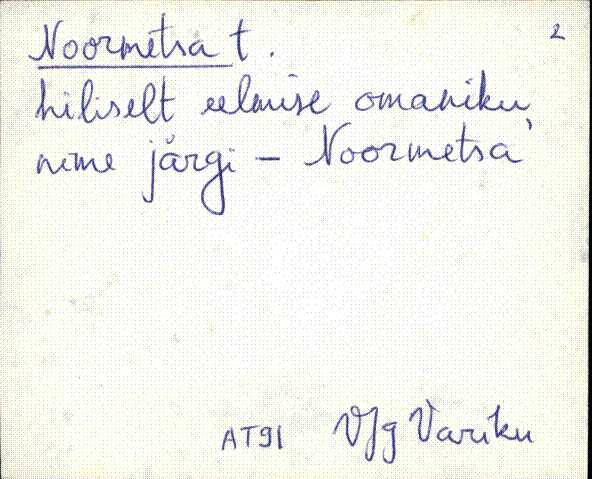 2
Noormetsa t.
hiliselt eelmise omaniku
nime järgi – Noormetsa
AT91 VJg Variku